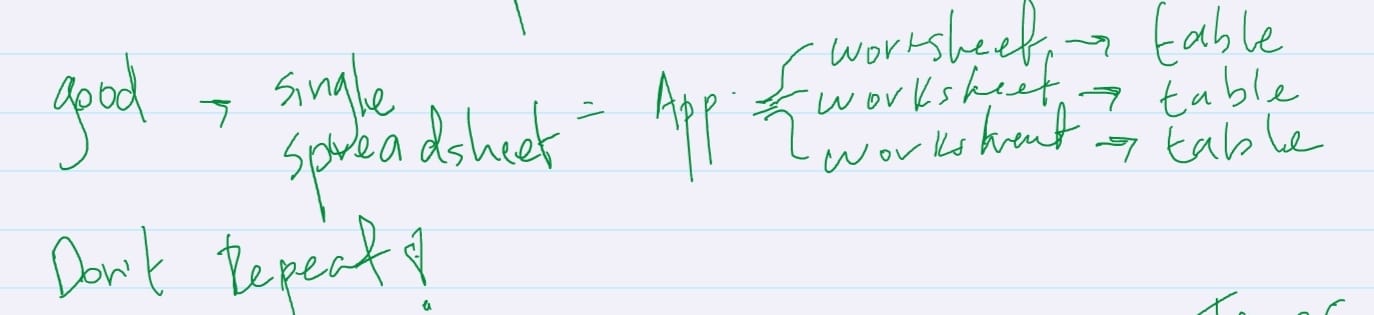 good → single spreadsheet = App { worksheet → table
worksheet → table
worksheet → table
Don't Repeat!